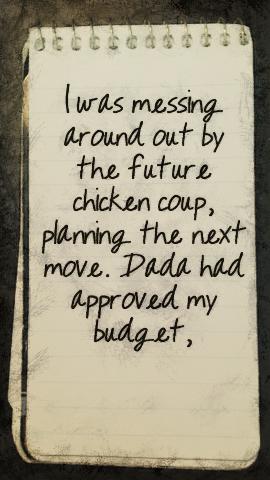 I was messing
around out by
the future
chicken coup,
planning the next
move. Dada had
approved my
budget,